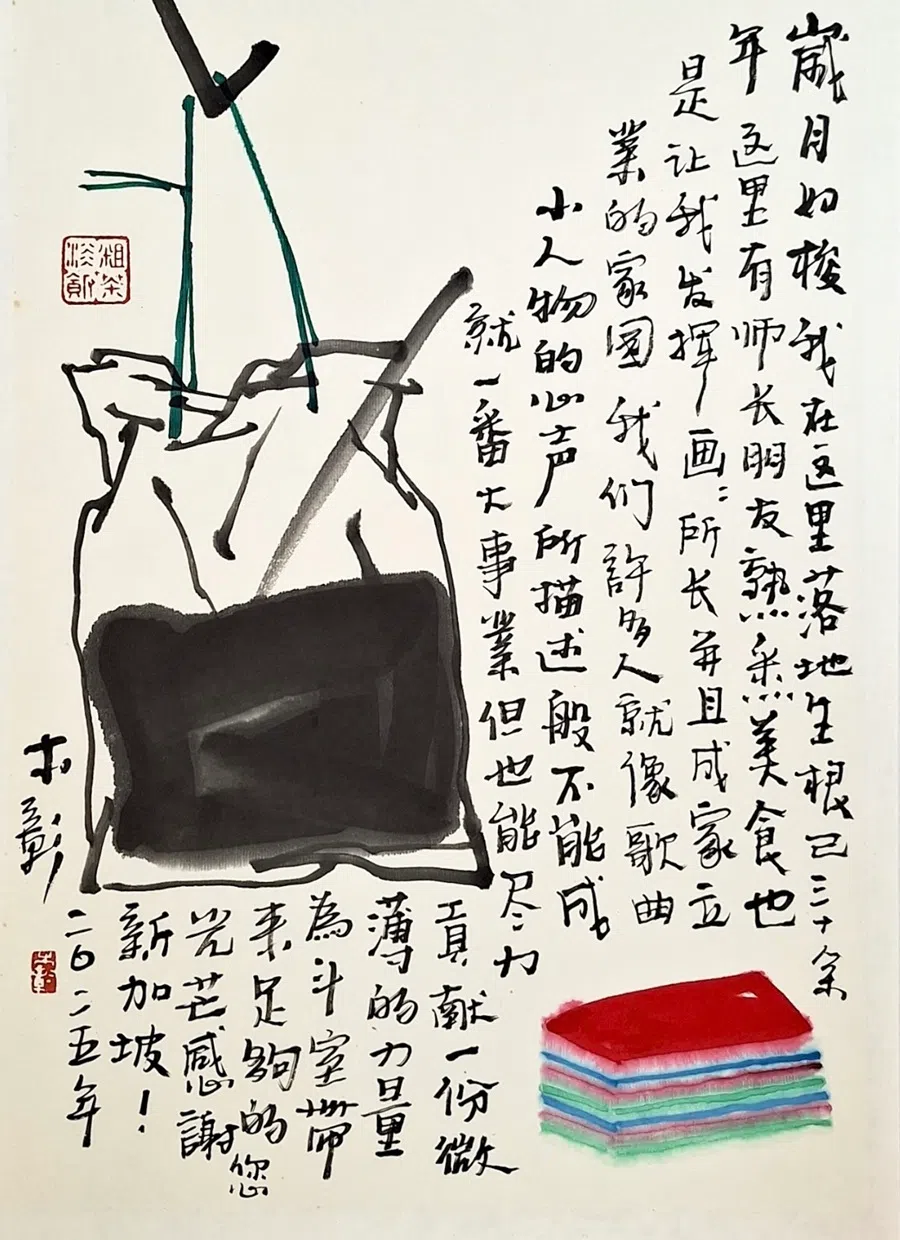 歲月如梭我在这里落地生根已三十余
年这里有师长朋友熟悉美食也
是让我发挥画々所长并且成家立
業的家園我们許多人就像歌曲
小人物的心声所描述般不能成
就一番大事業但也能尽力
貢献一份微
薄的力量
為斗室帶
来足夠的
光芒感謝您
新加坡！
二〇二五年
木彰
粗茶淡飯